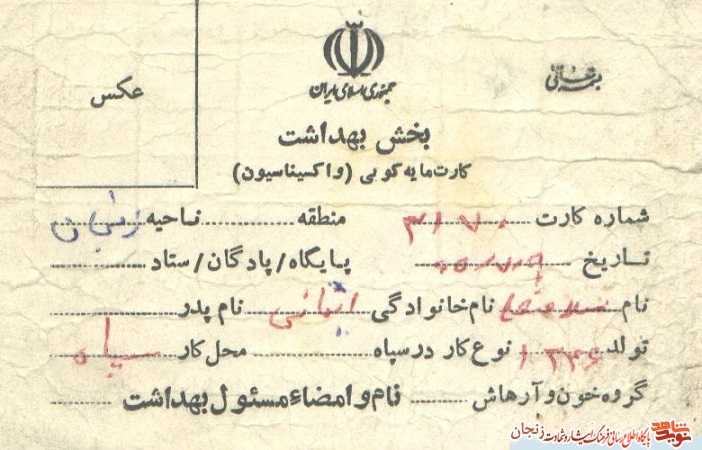 بسمه تعالی
جمهوری اسلامی ایران
عکس
بخش بهداشت
کارت مایه کوبی (واکسیناسیون)
شماره کارت ۳۱۷۰ منطقه ناحیه زنجان
تاریخ پایگاه/پادگان/ستاد
نام نام خانوادگی ایمانی نام پدر
تولد ۱۳۴۶ نوع کار در سپاه محل کار سپاه
گروه خون و آرهاش نام و امضاء مسئول بهداشت
نوید شاهد پایگاه اطلاع رسانی فرهنگ ایثار و شهادت زنجان